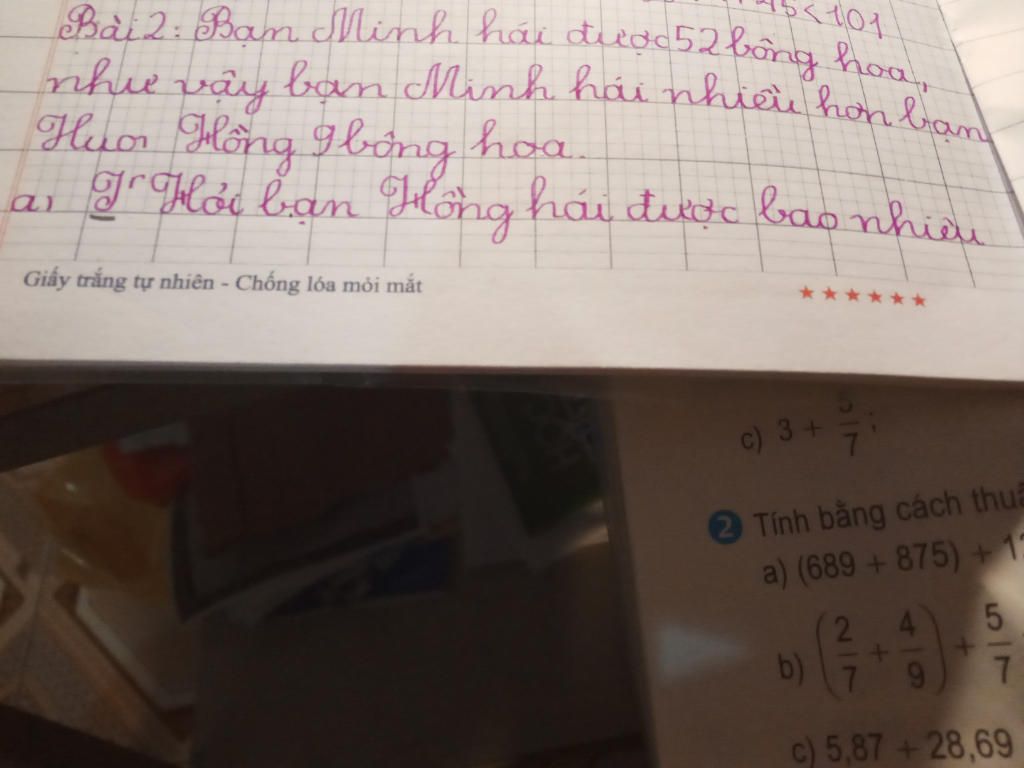 < 101
Bài 2: Bạn Minh hái được 52 bông hoa,
như vậy bạn Minh hái nhiều hơn bạn
Hồng 9 bông hoa.
a, Hỏi bạn Hồng hái được bao nhiêu
Giấy trắng tự nhiên - Chống lóa mỏi mắt
c) 3 + 5/7 ;
2 Tính bằng cách
a) (689 + 875) +
b) (2/7 + 4/9) + 5/7
c) 5,87 + 28,69